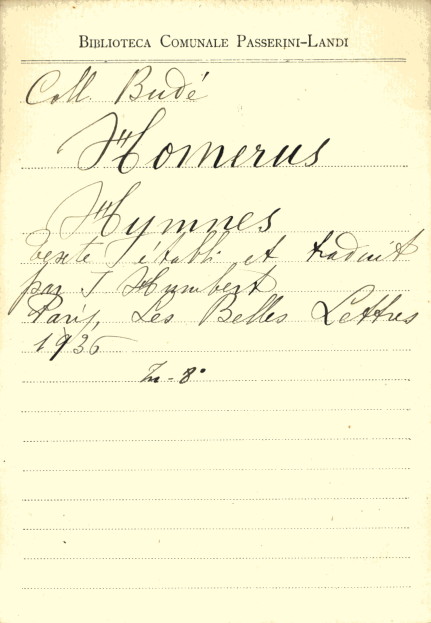 BIBLIOTECA COMUNALE PASSERINI-LANDI
Coll. Budé
Homerus
Hymnes
texte établi et traduit
par J Humbert
Paris, Les Belles Lettres
1936
In-8°